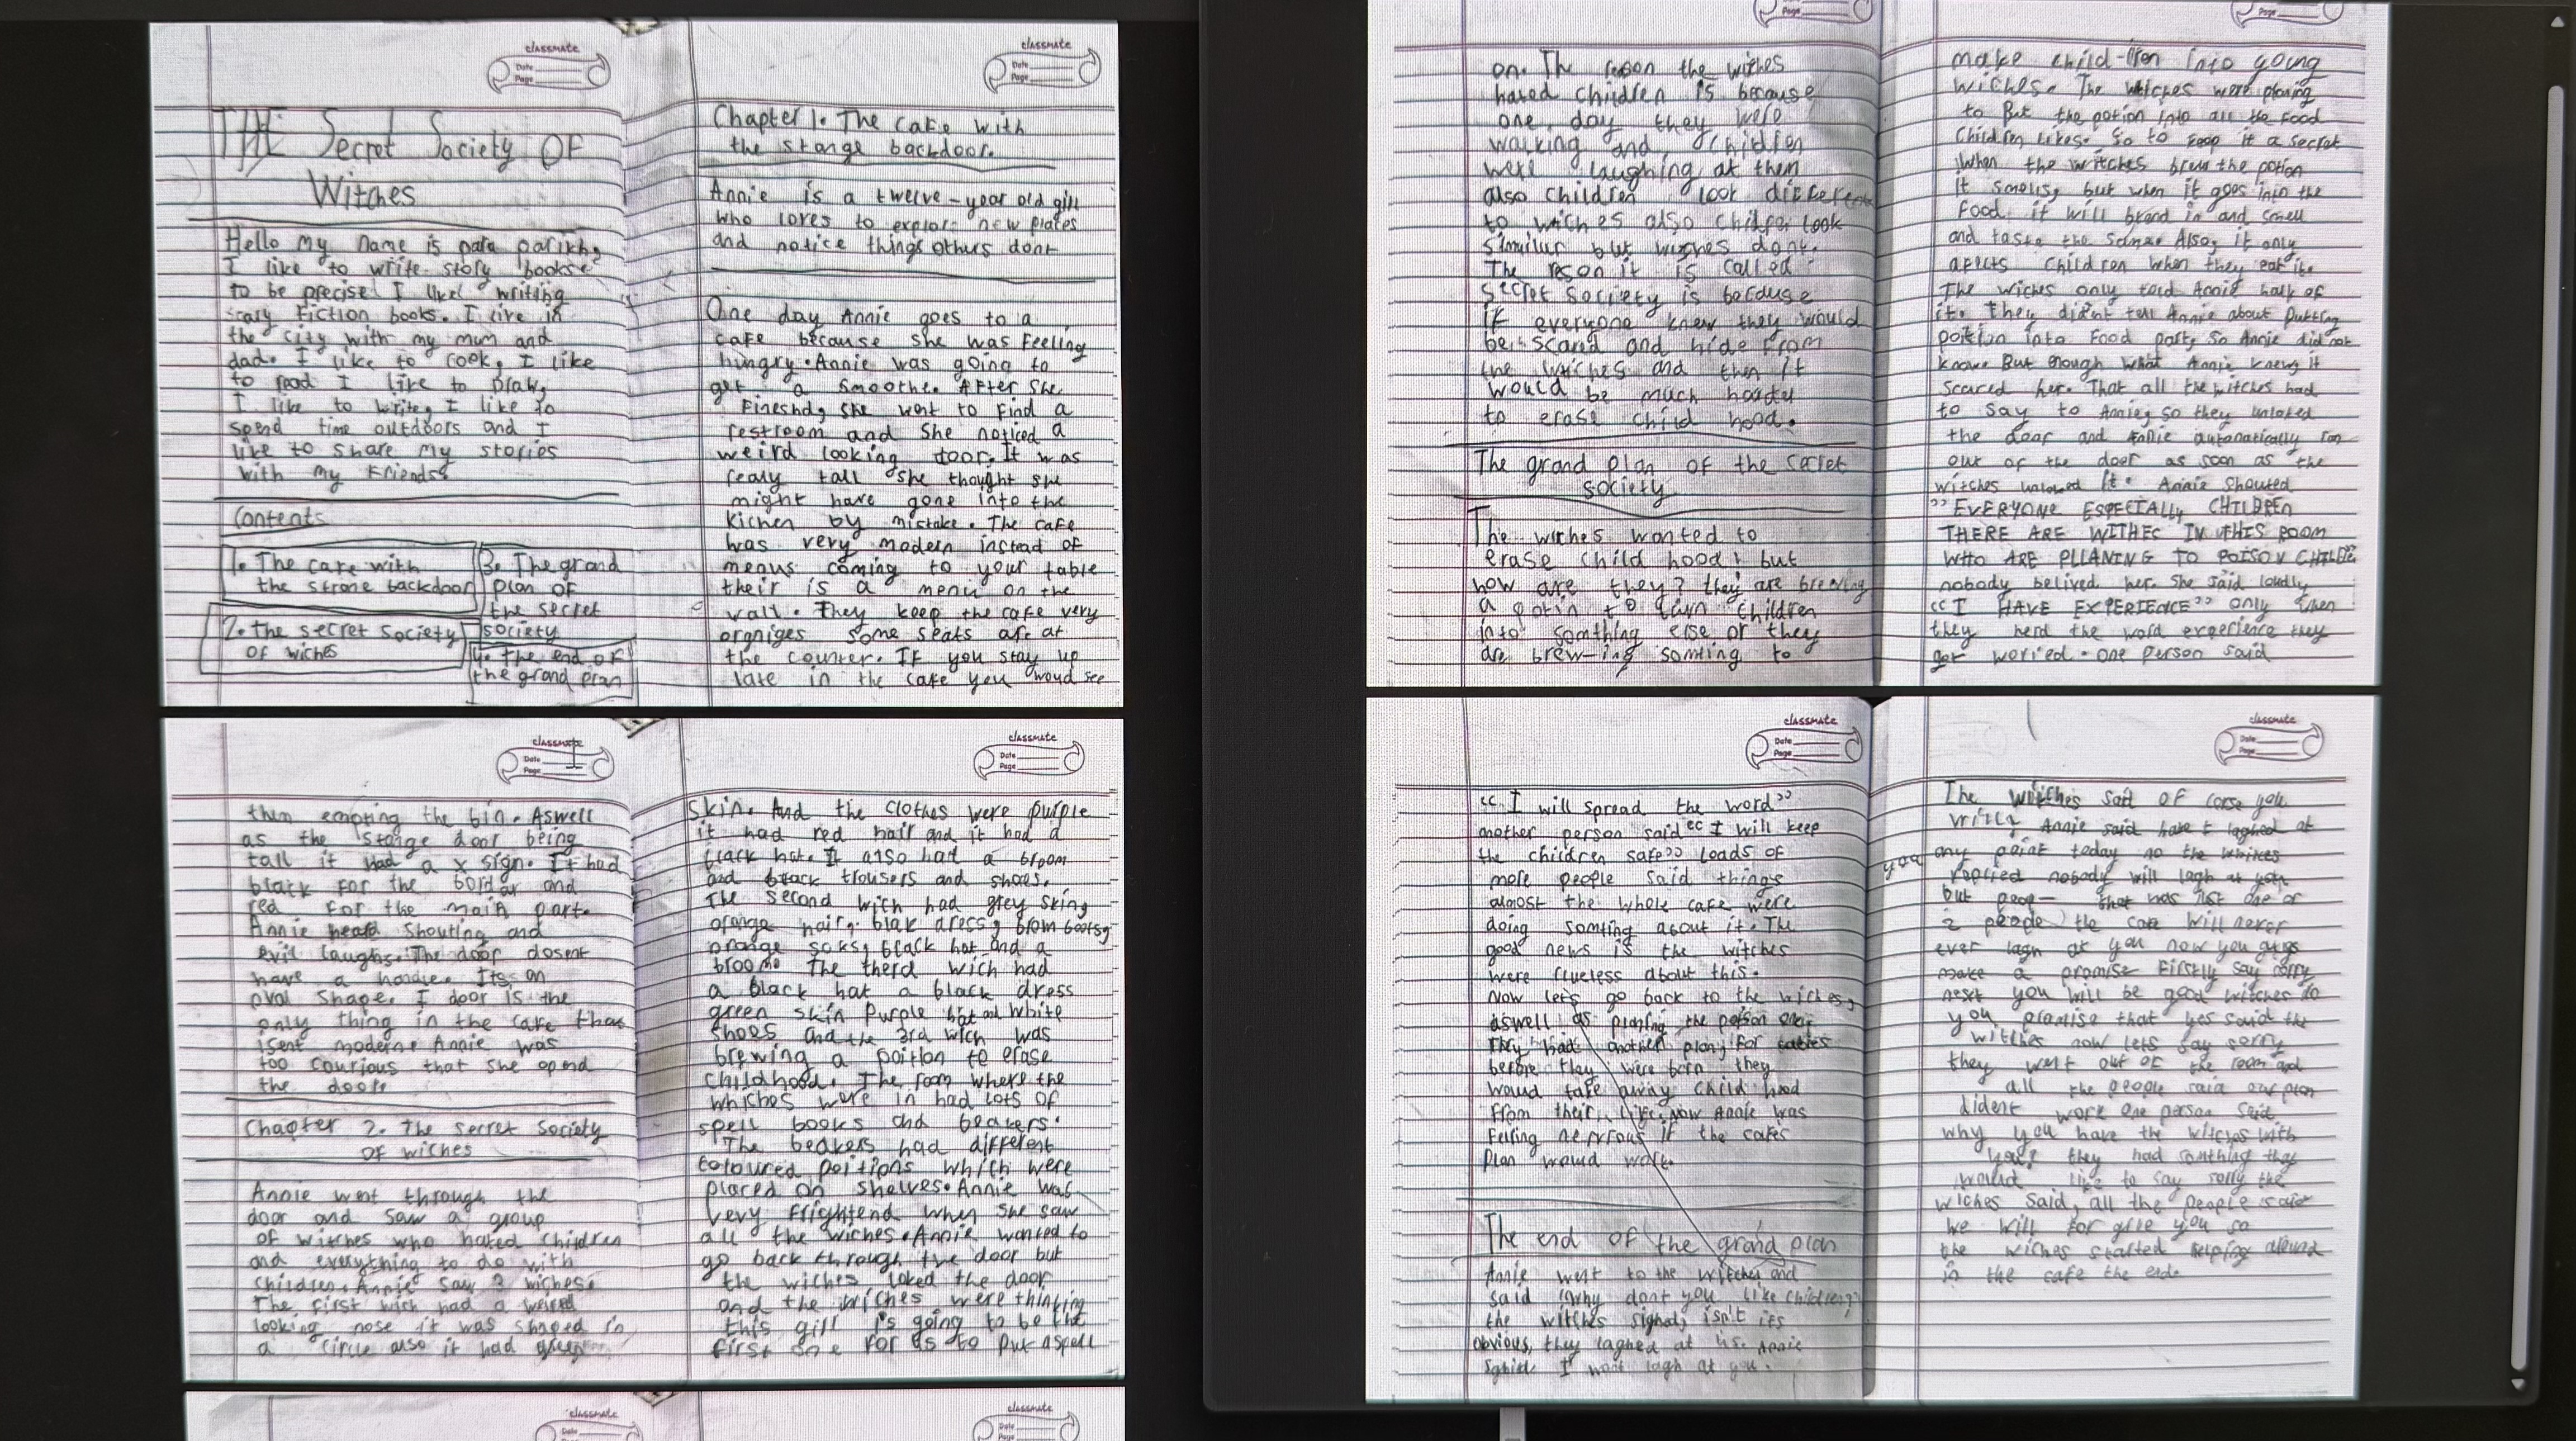 classmate
Date
Page
THE Secret Society OF
Witches
Hello my name is para parikh,
I like to write story books
to be precise I likel writing
scary Fiction books. I live in
the city with my mum and
dad. I like to cook, I like
to read I like to Draw,
I like to write, I like to
spend time outdoors and I
like to share my stories
with my Friends
Contents
1. The cafe with
the strone backdoor
2. the secret society
of wiches
3. The grand
plan of
the secret
society
4. the end of
the grand plan
classmate
Date
Page
Chapter 1. The cafe with
the stange backdoor.
Annie is a twelve-year old girl
who loves to explore new places
and notice things others dont
One day Annie goes to a
cafe because she was Feeling
hungry. Annie was going to
get a smoothe. After she
Fineshd, she went to Find a
restroom and she noticed a
weird looking door. It was
realy tall she thought she
might have gone into the
kichen by mistake. The cafe
was very modern instead of
menus coming to your table
their is a menu on the
wall. They keep the cafe very
orgniges some seats are at
the counter. IF you stay up
late in the cafe you woud see
classmate
Date
Page
them empting the bin. Aswell
as the stange door being
tall it had a x sign. It had
black For the boldar and
red For the main part.
Annie heard shouting and
evil laughs. The door dosent
have a handle. Its an
oval shape. I door is the
only thing in the cafe that
isent modern. Annie was
too courious that she opend
the door.
Chapter 2. The secret society
of wiches
Annie went through the
door and saw a group
of witches who hated children
and everything to do with
children. Annie saw 3 wiches.
The first wich had a weird
looking nose it was shaped in
a circle also it had green
classmate
Date
Page
skin. And the clothes were purple
it had red hair and it had a
black hat. It also had a broom
and black trousers and shoes.
The second with had grey sking
orange hair, blak dress, brom boots,
orange soks, black hat and a
broom. The therd wich had
a black hat a black dress
green skin Purple hat and white
shoes and the 3rd wich was
brewing a poition to erase
childhood. The room where the
whiches were in had lots of
spell books and beakers.
The beakers had different
coloured poitions which were
placed on shelves. Annie was
very Frightend when she saw
all the wiches. Annie wanted to
go back through the door but
the wiches loked the door
and the wiches were thinking
this gill is going to be the
first one For us to put a spell
classmate
Date
classmate
Date
Page
on. The reson the wiches
hated children is because
one day they were
walking and children
were laughing at them
also children look different
to wiches also childre look
similur but wiches dont.
The reson it is called
secret society is because
if everyone knew they would
be scared and hide from
the wiches and then it
would be much harder
to erase child hood.
The grand plan of the secret
society
The wiches wanted to
erase child hood! but
how are they? they are brewing
a potin to turn children
into somthing else or they
are brew-ing somting to
Page
make child-ren into going
wiches. The witches were planing
to Put the potion into all the food
children likes. So to keep it a secret
When the writches brew the potion
it smells, but when it goes into the
food it will brend in and smell
and taste the same. Also, it only
afects children when they eat it.
The wiches only told Annie half of
it. they didnt tell Annie about putting
poition into Food part, so Annie did not
know. But enough what Annie knew it
scared her. That all the witches had
to say to Annie, so they unloked
the door and Annie automatically ran
out of the door as soon as the
witches unloked it. Annie shouted
"EVERYONE ESPECIALLY CHILDREN
THERE ARE WITHEC IN THIS ROOM
WHO ARE PLLANING TO POISON CHILDE
nobody belived her. She said loudly
"I HAVE EXPERIENCE" only when
they herd the word experience they
got woried. one person said
classmate
Date
Page
"I will spread the word"
another person said "I will keep
the children safe" loads of
more people said things
almost the whole cafe were
doing somting about it. The
good news is the witches
were clueless about this.
Now lets go back to the wiches,
aswell as planing the potion
They had another plan, For
before they were born they
woud take away child hood
from their life. now Annie was
Feeling nervous if the cafes
plan woud work.
The end of the grand plan
Annie went to the witches and
said "why dont you like children?"
the witches sighed, isn't its
obvious, they laghed at us. Annie
sghid. I wont lagh at you.
classmate
Date
Page
The witches said OF corse you
will, Annie said have I laghed at
you any point today no the whiches
replied nobody will lagh at you
but peop- that was just one or
2 people the cafe will never
ever lagh at you now you guys
make a promise Firstly say sorry
next you will be good witches do
you promise that yes said the
witches now lets say sorry
they went out of the room and
all the people said our plan
dident work one person said
why you have the witches with
you? they had somthing they
would like to say sorry the
wiches said, all the people said
we will for give you so
the wiches started helping around
in the cafe the end.